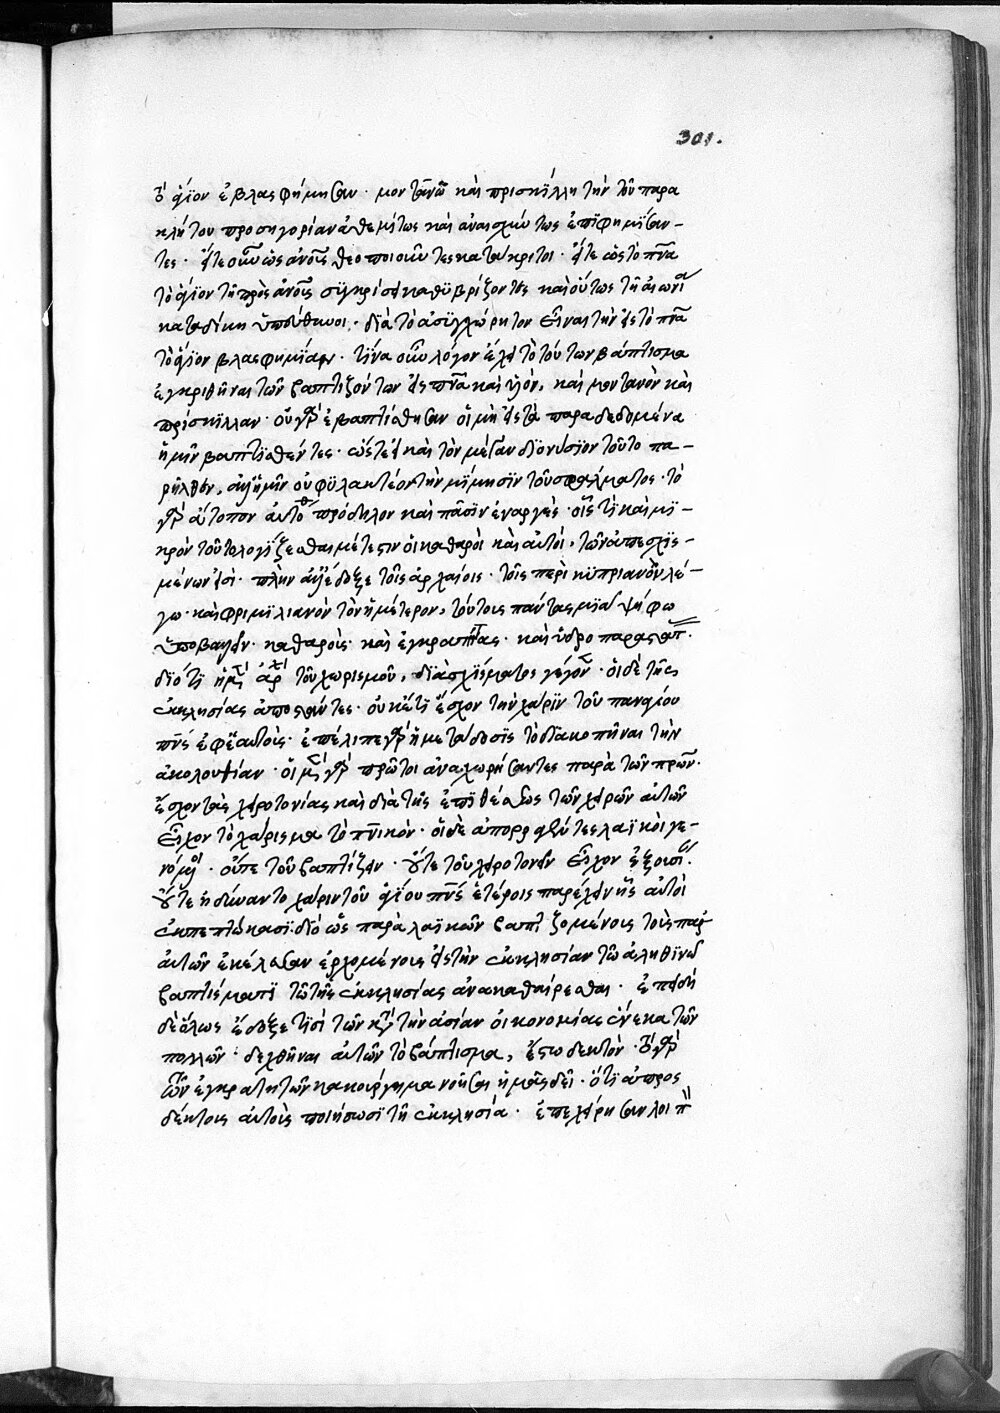 301.
τὸ ἅγιον ἐβλασφήμησαν· μοντανῷ καὶ πρισκίλλῃ τὴν τοῦ παρα
κλήτου προσηγορίαν ἀθεμίτως καὶ ἀναισχύντως ἐπιφημίσαν-
τες· εἴτε οὖν ὡς ἀνους θεοποιοῦντες κατάκριτοι· εἴτε ὡς τὸ πνα
τὸ ἅγιον τῇ πρὸς ἀνους συγκρίσει καθυβρίζοντες καὶ οὕτως τῇ αἰωνί
καταδίκῃ ὑπεύθυνοι· διὰ τὸ ἀσυγχώρητον εἶναι τὴν εἰς τὸ πνα
τὸ ἅγιον βλασφημίαν· τίνα οὖν λόγον ἔχει τὸ τούτων βάπτισμα
ἐγκριθῆναι τῶν βαπτιζόντων εἰς πνα καὶ υἱόν, καὶ μοντανὸν καὶ
πρίσκιλλαν· οὐ γὰρ ἐβαπτίσθησαν οἱ μὴ εἰς τὰ παραδεδομένα
ἡμῖν βαπτισθέντες· ὥστε εἰ καὶ τὸν μέγαν διονύσιον τοῦτο πα-
ρῆλθεν, ἀλλ' ἡμῖν οὐ φυλακτέον τὴν μίμησιν τοῦ σφάλματος· τὸ
γὰρ ἄτοπον αὐτόθ πρόδηλον καὶ πᾶσιν ἐναργὲς· οἷς τι καὶ μι-
κρὸν τοῦ λογίζεσθαι μέτεστιν οἱ καθαροὶ καὶ αὐτοὶ, τῶν ἀπεσχισ-
μένων εἰσὶ· πλὴν ἀλλ' ἔδοξε τοῖς ἀρχαίοις· τοῖς περὶ κυπριανὸν λέ-
γω· καὶ φριμιλιανὸν τὸν ἡμέτερον, τούτους πάντας μιᾷ ψήφῳ
ὑποβαλεῖν· καθαροὺς· καὶ ἐγκρατίτας· καὶ ὑδροπαραστάτ.
διότι ἡ μ ἀρχ τοῦ χωρισμοῦ, διὰ σχίσματος γέγον· οἱ δὲ τῆς
ἐκκλησίας ἀποστάντες· οὐκέτι ἔσχον τὴν χάριν τοῦ παναγίου
πνς ἐφ' ἑαυτοὺς· ἐπέλιπε γὰρ ἡ μετάδοσις τὸ διακοπῆναι τὴν
ἀκολουθίαν· οἱ μ γὰρ πρῶτοι ἀναχωρήσαντες παρὰ τῶν πρων·
ἔσχον τὰς χειροτονίας καὶ διὰ τῆς ἐπιθέσεως τῶν χειρῶν αὐτῶν
εἶχον τὸ χάρισμα τὸ πνικόν· οἱ δὲ ἀπορραγέντες λαϊκοὶ γε-
νόμοι· οὔτε τοῦ βαπτίζειν· οὔτε τοῦ χειροτονεῖν εἶχον ἐξουσί.
οὔτε ἠδύναντο χάριν τοῦ ἁγίου πνς ἑτέροις παρέχειν ἧς αὐτοὶ
ἐκπεπτώκασι· διὸ ὡς παρὰ λαϊκῶν βαπτιζομένοις τοὺς παρ
αὐτῶν ἐκέλευσαν ἐρχομένοις εἰς τὴν ἐκκλησίαν τῷ ἀληθινῷ
βαπτίσματι τῷ τῆς ἐκκλησίας ἀνακαθαίρεσθαι· ἐπειδὴ
δὲ ὅλως ἔδοξέ τισι τῶν κτ τὴν ἀσίαν οἰκονομίας ἕνεκα τῶν
πολλῶν· δεχθῆναι αὐτῶν τὸ βάπτισμα, ἔστω δεκτὸν· τὸ γὰρ
τῶν ἐγκρατητῶν κακούργημα νοῆσαι ἡμᾶς δεῖ· ὅτι ἀπρος
δέκτοις αὐτοὺς ποιήσωσι τῇ ἐκκλησίᾳ· ἐπεχείρησαν λοιπ